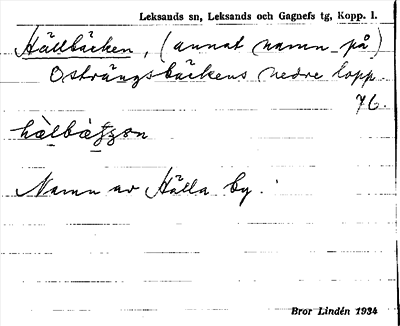 Leksands sn, Leksands och Gagnefs tg, Kopp. l.
Hällbäcken, (annat namn på)
Osträngsbäckens nedre lopp.
76.
Namn av Hälla by.
Bror Lindén 1934